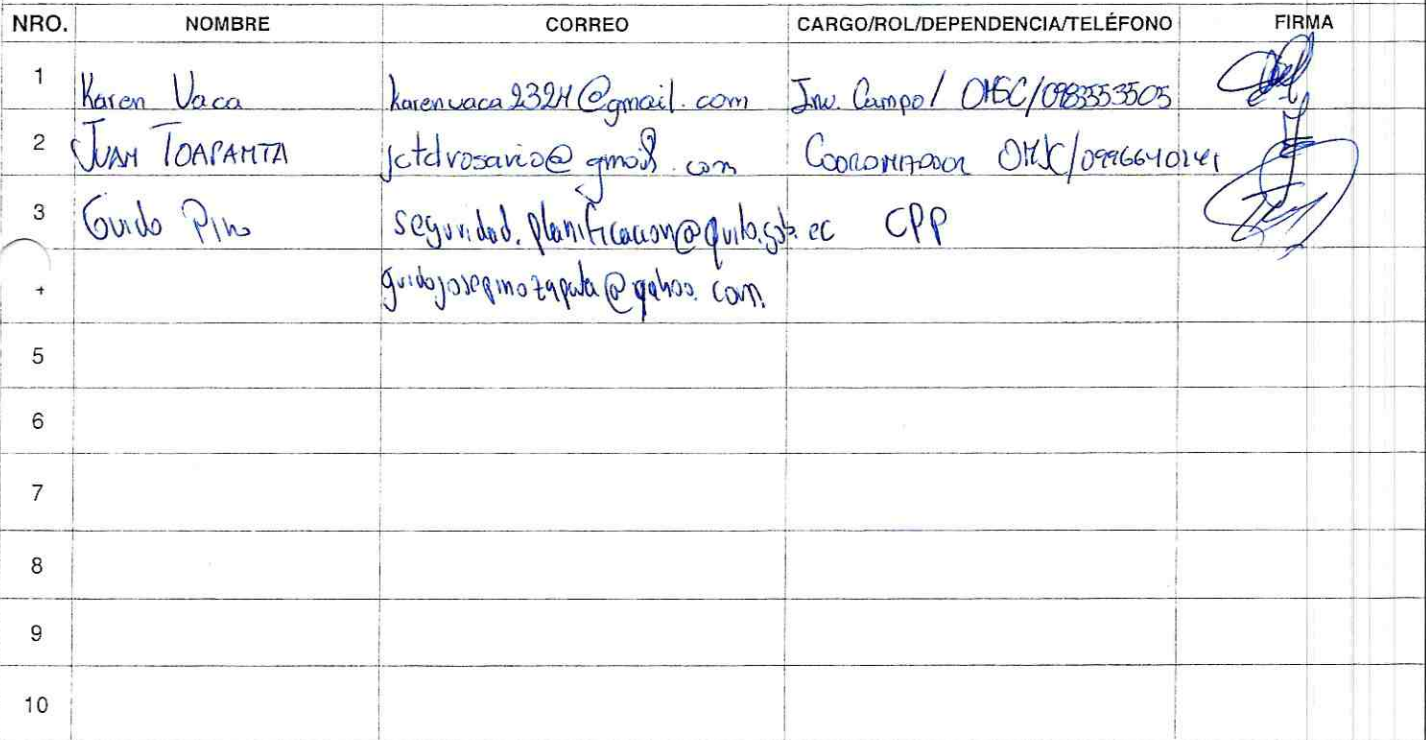 NRO. NOMBRE CORREO CARGO/ROL/DEPENDENCIA/TELÉFONO FIRMA
1 Karen Vaca karenvaca2324@gmail.com Inv. Campo / OMSC/0983553505
2 JUAN TOAPANTA jctdrosario@gmail.com COORDINADOR OMSC/0996640241
3 Guido Pino seguridad.planificacion@quito.gob.ec CPP
4 guidojosepinozapata@yahoo.com
5
6
7
8
9
10